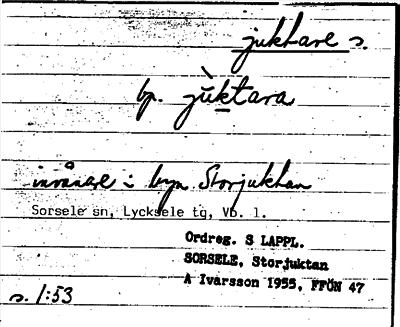 juktare s.
bp. jùktara
invånare i byn Storjuktan
Sorsele sn, Lycksele tg, Vb. l.
Ordreg. S LAPPL.
SORSELE, Storjuktan
A Ivarsson 1955, FFÖN 47
s. 1:53